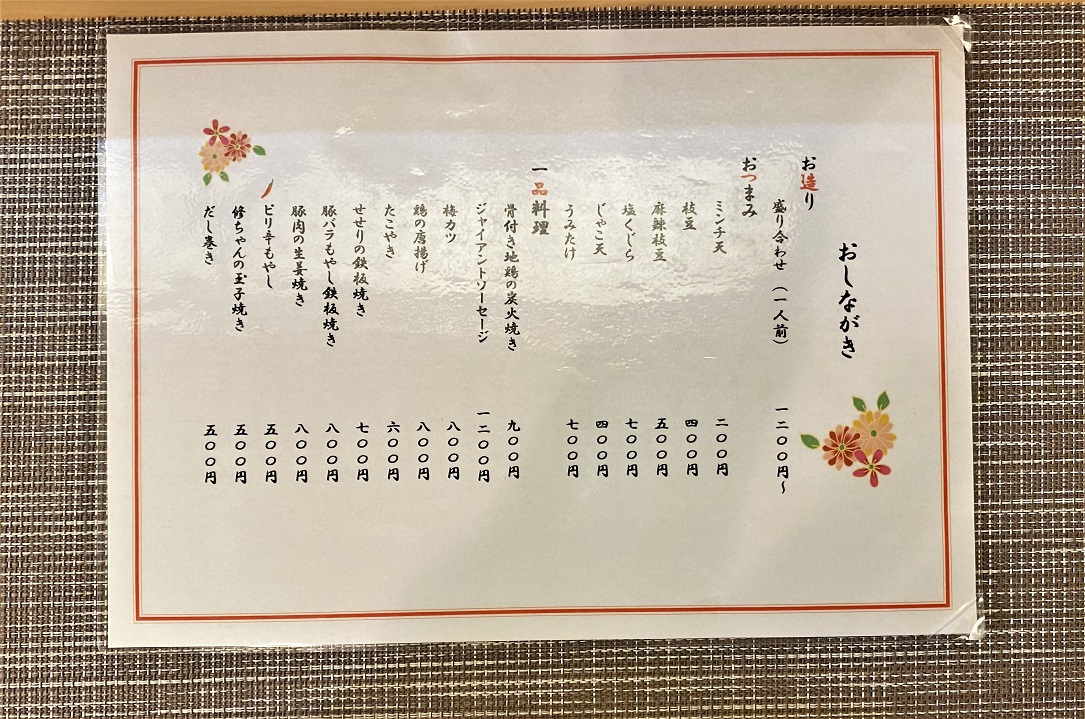 おしながき
お造り
盛り合わせ（一人前） 一二〇〇円～
おつまみ
ミンチ天 二〇〇円
枝豆 四〇〇円
麻辣枝豆 五〇〇円
塩くじら 七〇〇円
じゃこ天 四〇〇円
うみたけ 七〇〇円
一品料理
骨付き地鶏の炭火焼き 九〇〇円
ジャイアントソーセージ 一二〇〇円
梅カツ 八〇〇円
鶏の唐揚げ 八〇〇円
たこやき 六〇〇円
せせりの鉄板焼き 七〇〇円
豚バラもやし鉄板焼き 八〇〇円
豚肉の生姜焼き 八〇〇円
ピリ辛もやし 五〇〇円
修ちゃんの玉子焼き 五〇〇円
だし巻き 五〇〇円